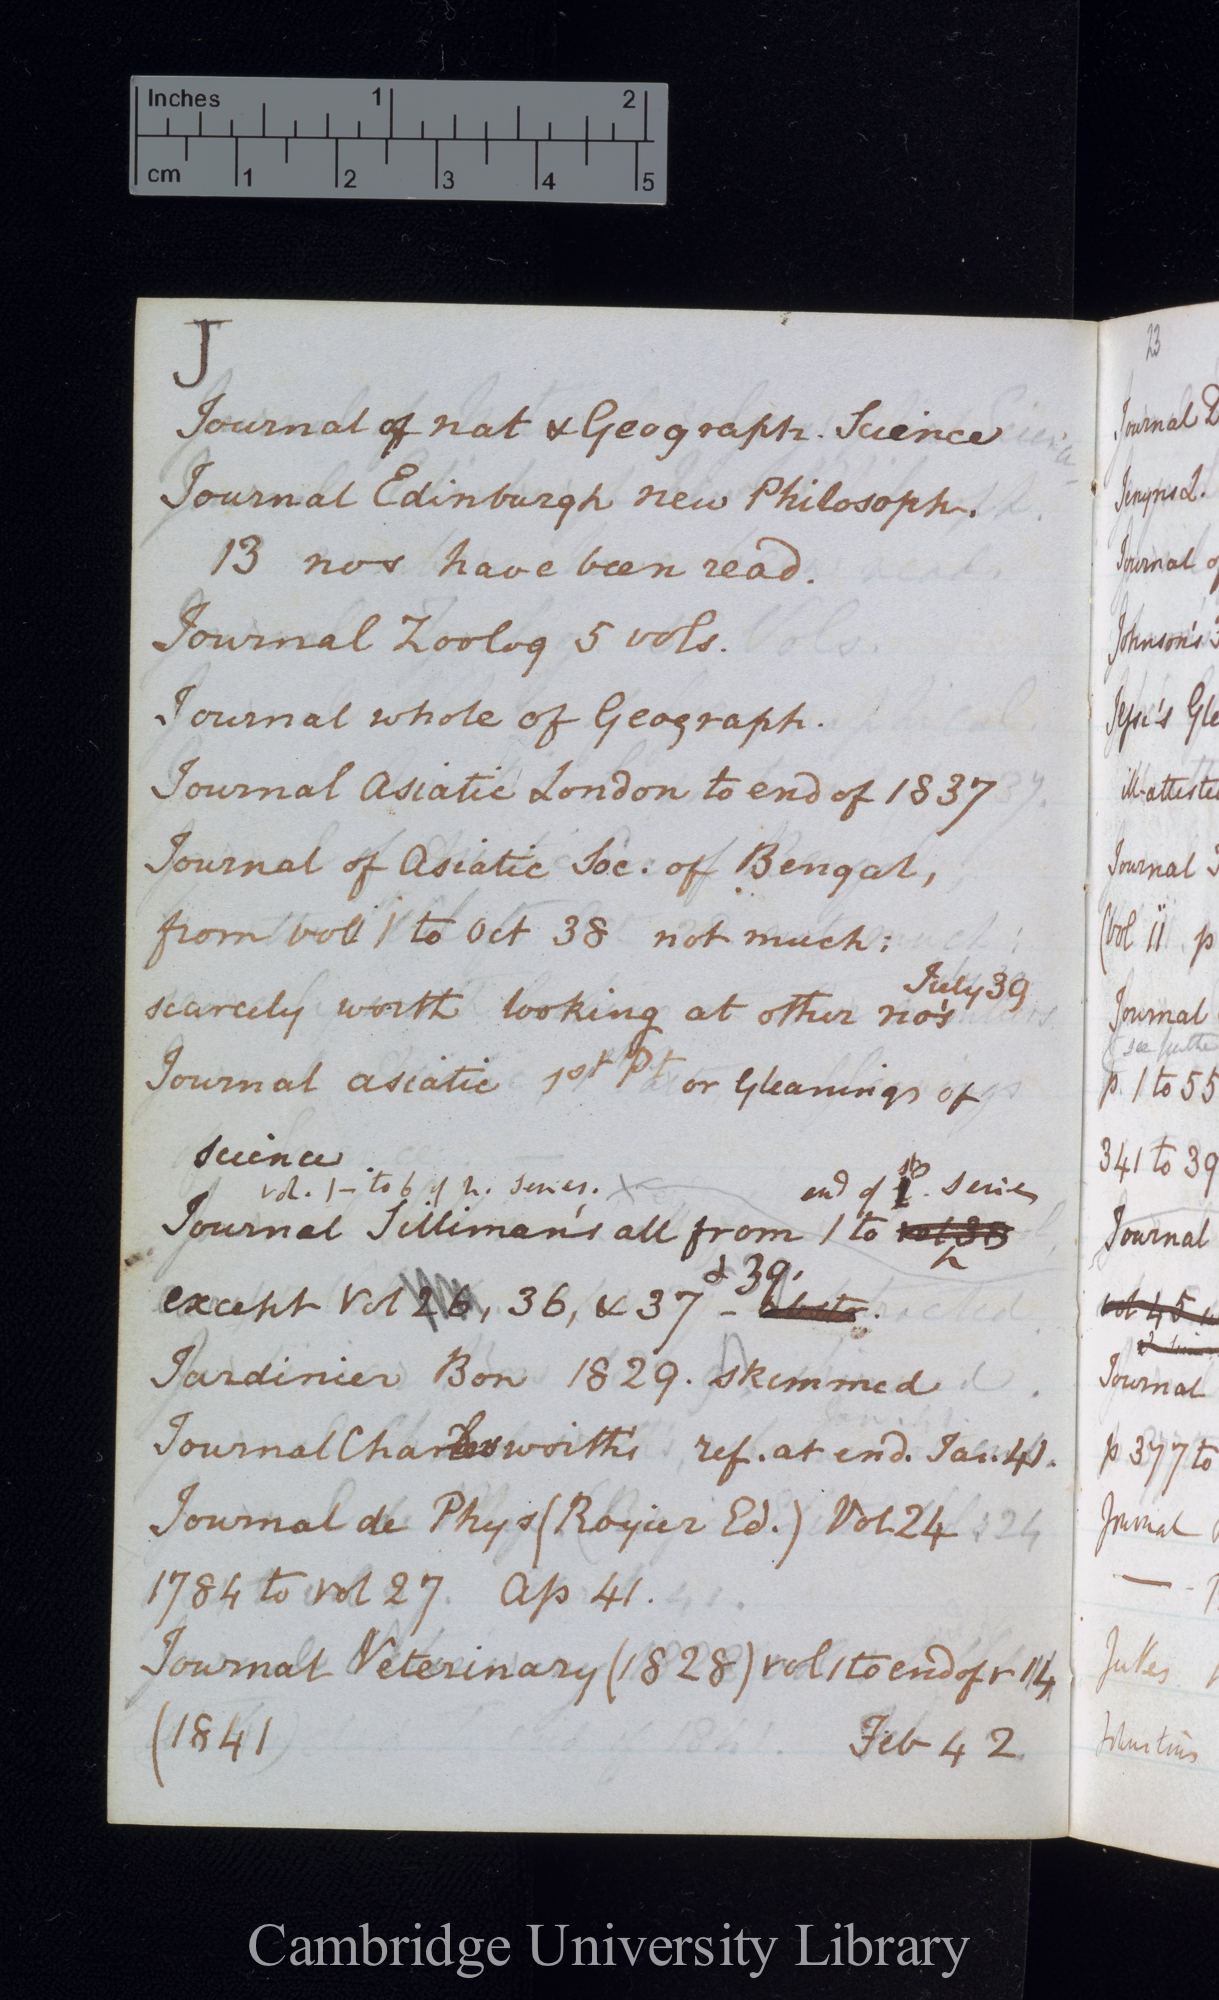 Inches 1 2
cm 1 2 3 4 5
J
Journal of nat & Geograph. Science
Journal Edinburgh new Philosoph.
13 nos have been read.
Journal Zoolog 5 vols.
Journal whole of Geograph.
Journal Asiatic London to end of 1837
Journal of Asiatic Soc: of Bengal,
from vol 1 to Oct 38 not much:
July 39
scarcely worth looking at other no's
Journal asiatic 1st Pt or Gleanings of
science
vol. 1 – to 6 of n. Series. end of 1st. Series
Journal Silliman's all from 1 to vol 38
& 39.
except Vol 26, 36, & 37 –
Jardinier Bon 1829. skimmed
Journal Charlesworth's ref. at end. Jan. 41.
Journal de Phys (Rozier Ed.) Vol 24
1784 to vol 27. Ap 41.
Journal Veterinary (1828) vol 1 to end of v 14
(1841 Feb 42
23
Journal
Jenyns L.
Journal of
Johnson's
Jesse's Gle
ill-atteste
Journal
(Vol 11 p
Journal
p. 1 to 55
341 to 39
Journal
vol 45
Journal
p 377 to
Journal
Cambridge University Library